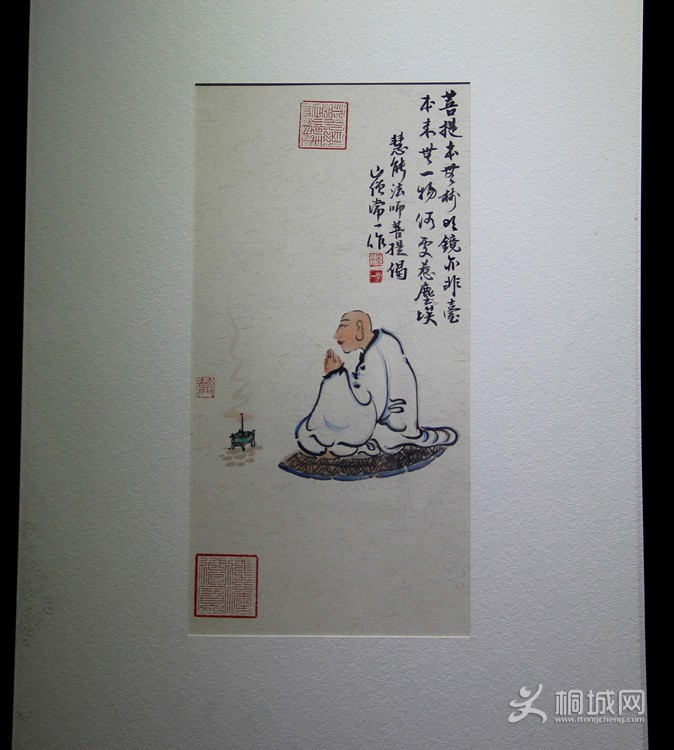 菩提本無樹明鏡亦非臺
本来無一物何處惹塵埃
慧能法師菩提偈
山僧常一作
桐城网
www.itongcheng.com